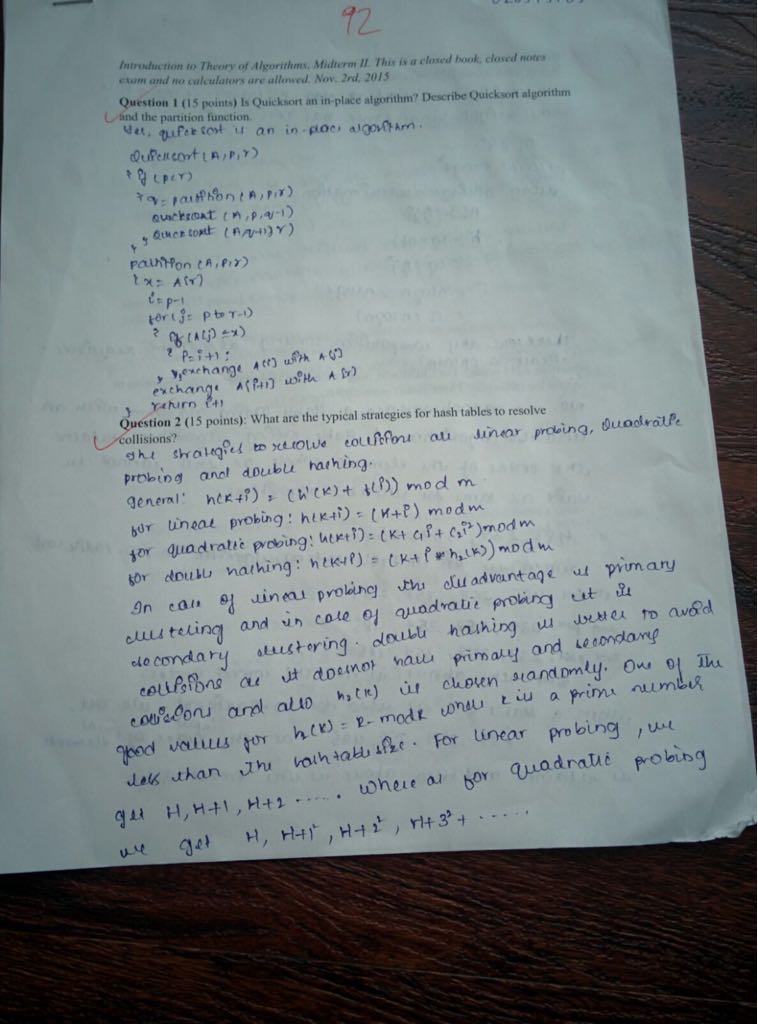 92
Introduction to Theory of Algorithms, Midterm II. This is a closed book, closed notes
exam and no calculators are allowed. Nov. 2rd, 2015
Question 1 (15 points) Is Quicksort an in-place algorithm? Describe Quicksort algorithm
and the partition function.
Yes, quicksort is an in-place algorithm.
Quicksort (A,P,r)
{ if (p<r)
{ q = partition (A,P,r)
quicksort (A,p,q-1)
} } Quicksort (A,q+1,r)
partition (A,P,r)
{ x = A[r)
i = p-1
for (j = p to r-1)
{ if (A[j) <=x)
{ i=i+1;
} } exchange A[i] with A[j]
exchange A[i+1] with A[r)
} return i+1
Question 2 (15 points): What are the typical strategies for hash tables to resolve
collisions?
The strategies to resolve collisions are linear probing, Quadratic
probing and double hashing.
general: h(K+i) = (h'(K) + f(i)) mod m
for linear probing: h(K+i) = (K+i) mod m
for quadratic probing: h(K+i) = (K+ c₁i + c₂i²) mod m
for double hashing: h(K+i) = (K+i * h₂(K)) mod m
In case of linear probing the disadvantage is primary
clustering and in case of quadratic probing it is
secondary clustering. double hashing is better to avoid
collisions as it doesnot have primary and secondary
collisions and also h₂(K) is chosen randomly. One of the
good values for h₂(K) = R - mod R where R is a prime number
less than the hash table size. For linear probing, we
get H, H+1, H+2 ...... where as for quadratic probing
we get H, H+1², H+2², H+3² + ......